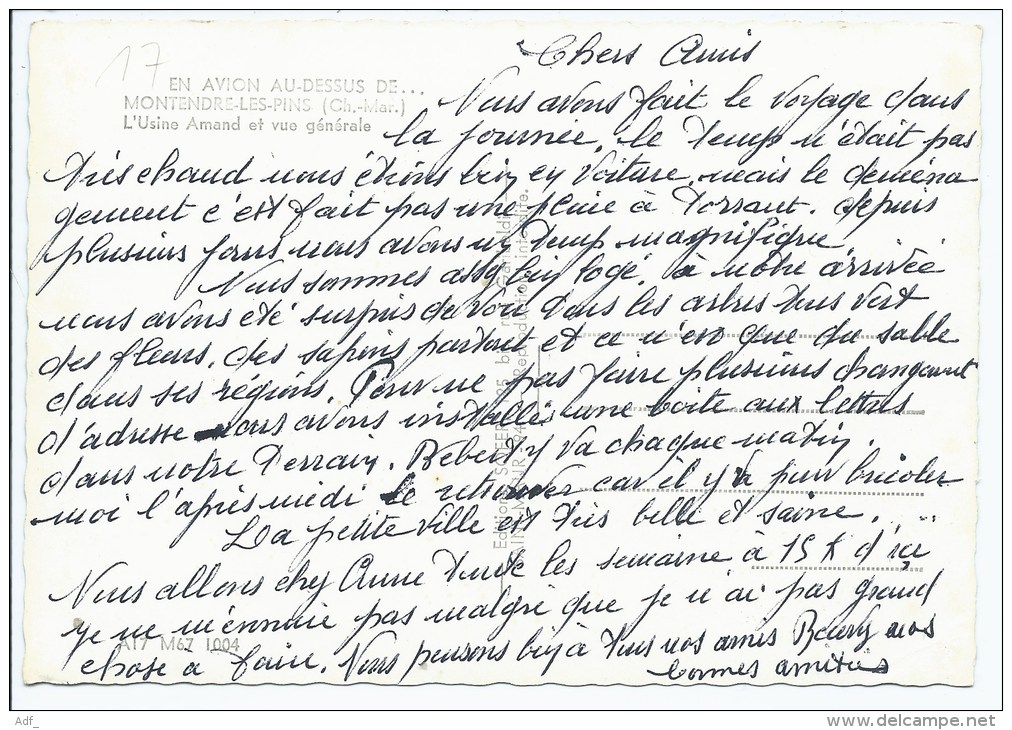 17
Chers Amis
EN AVION AU-DESSUS DE...
MONTENDRE-LES-PINS (Ch.-Mar.)
L'Usine Amand et vue générale
Nous avons fait le voyage dans
la journée, le temps n'était pas
très chaud nous étions bien en voiture, mais le déména
gement c'est fait pas une pluie à torrent. depuis
plusieurs jours nous avons un temp magnifique,
Nous sommes assez bien logé, à notre arrivée
nous avons été surpris de voir tous les arbres tous vert
des fleurs, des sapins partout et ce n'en que du sable
dans ses régions. Pour ne pas faire plusieurs changement
d'adresse nous avons installés une boite aux lettres
dans notre terrain. Bebert y va chaque matin.
moi l'après midi le retrouver car il y va pour bricoler
La petite ville est très belle et saine.
Nous allons chez Anne toute les semaine à 15 K d'ici
je ne m'ennuie pas malgré que je n'ai pas grand
chose à faire. Nous pensons bien à tous nos amis Recevez nos
bonnes amitiés
A17 M67 1004
Adf_
www.delcampe.net